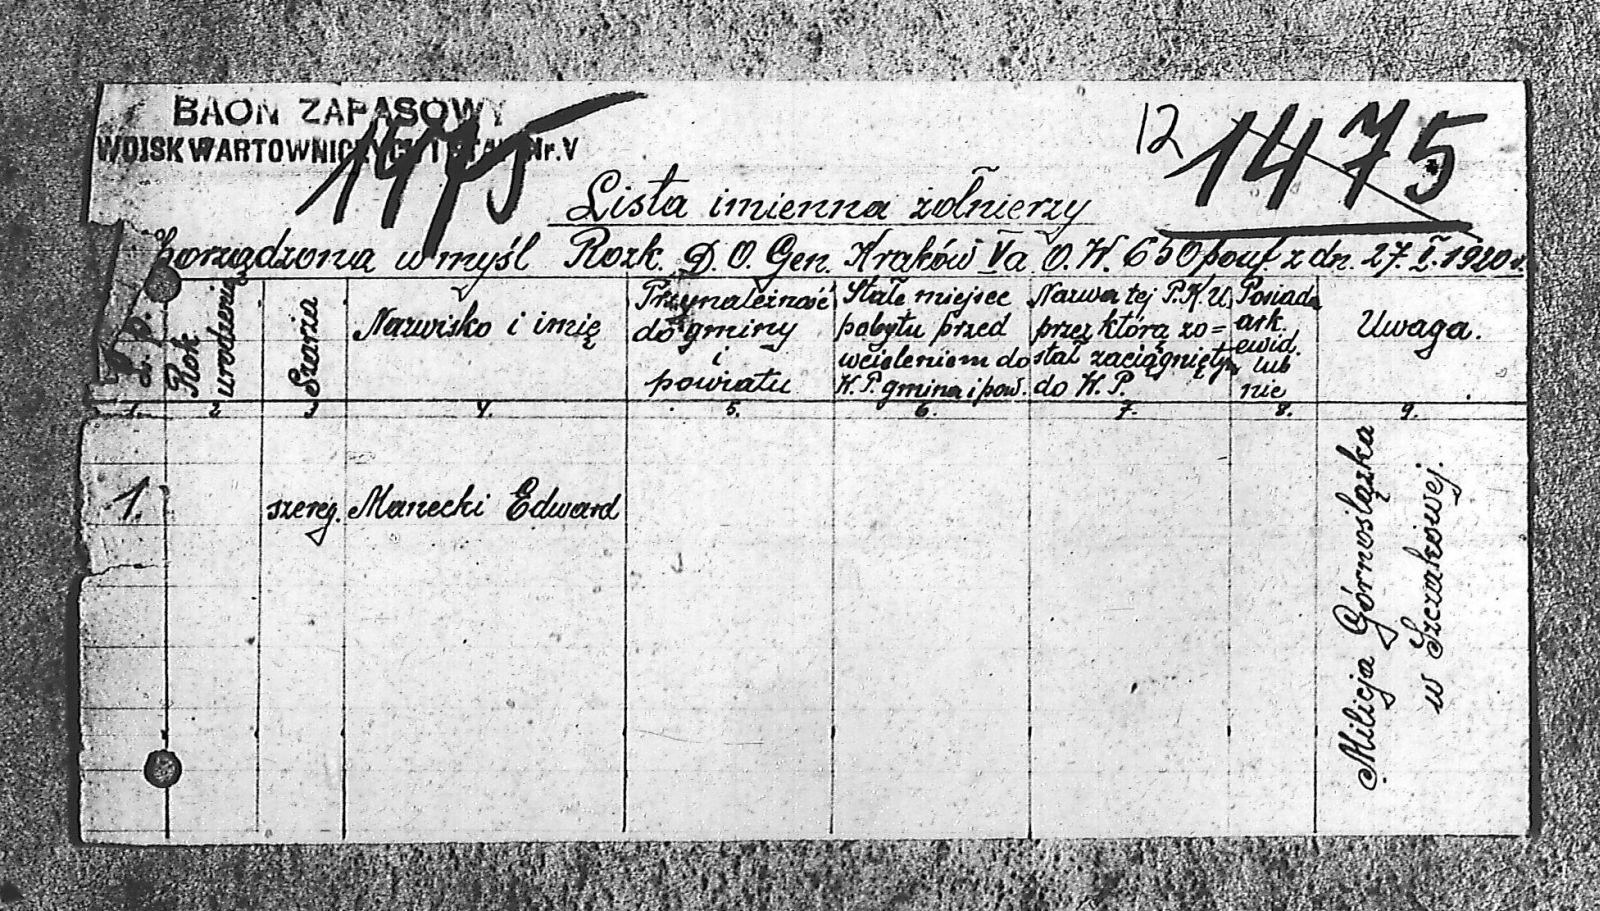 BAON ZAPASOWY
WOJSK WARTOWNICZYCH I ETAP. Nr. V
1475
12 1475
Lista imienna żołnierzy
sporządzona w myśl Rozk. D. O. Gen. Kraków Va O. W. 650 pouf z dn. 27. I. 1920 r.
L. p.
Rok urodzenia
Szarża
Nazwisko i imię
Przynależność
do gminy
i
powiatu
Stałe miejsce
pobytu przed
wcieleniem do
W. P. gmina i pow.
Nazwa tej P.K.U.
przez którą zo=
stał zaciągnięty
do W. P.
Posiada
ark.
ewid.
lub
nie
Uwaga.
1. 2. 3. 4. 5. 6. 7. 8. 9.
1. szereg. Manecki Edward
Milicja Górnoślązka
w Szczakowej.